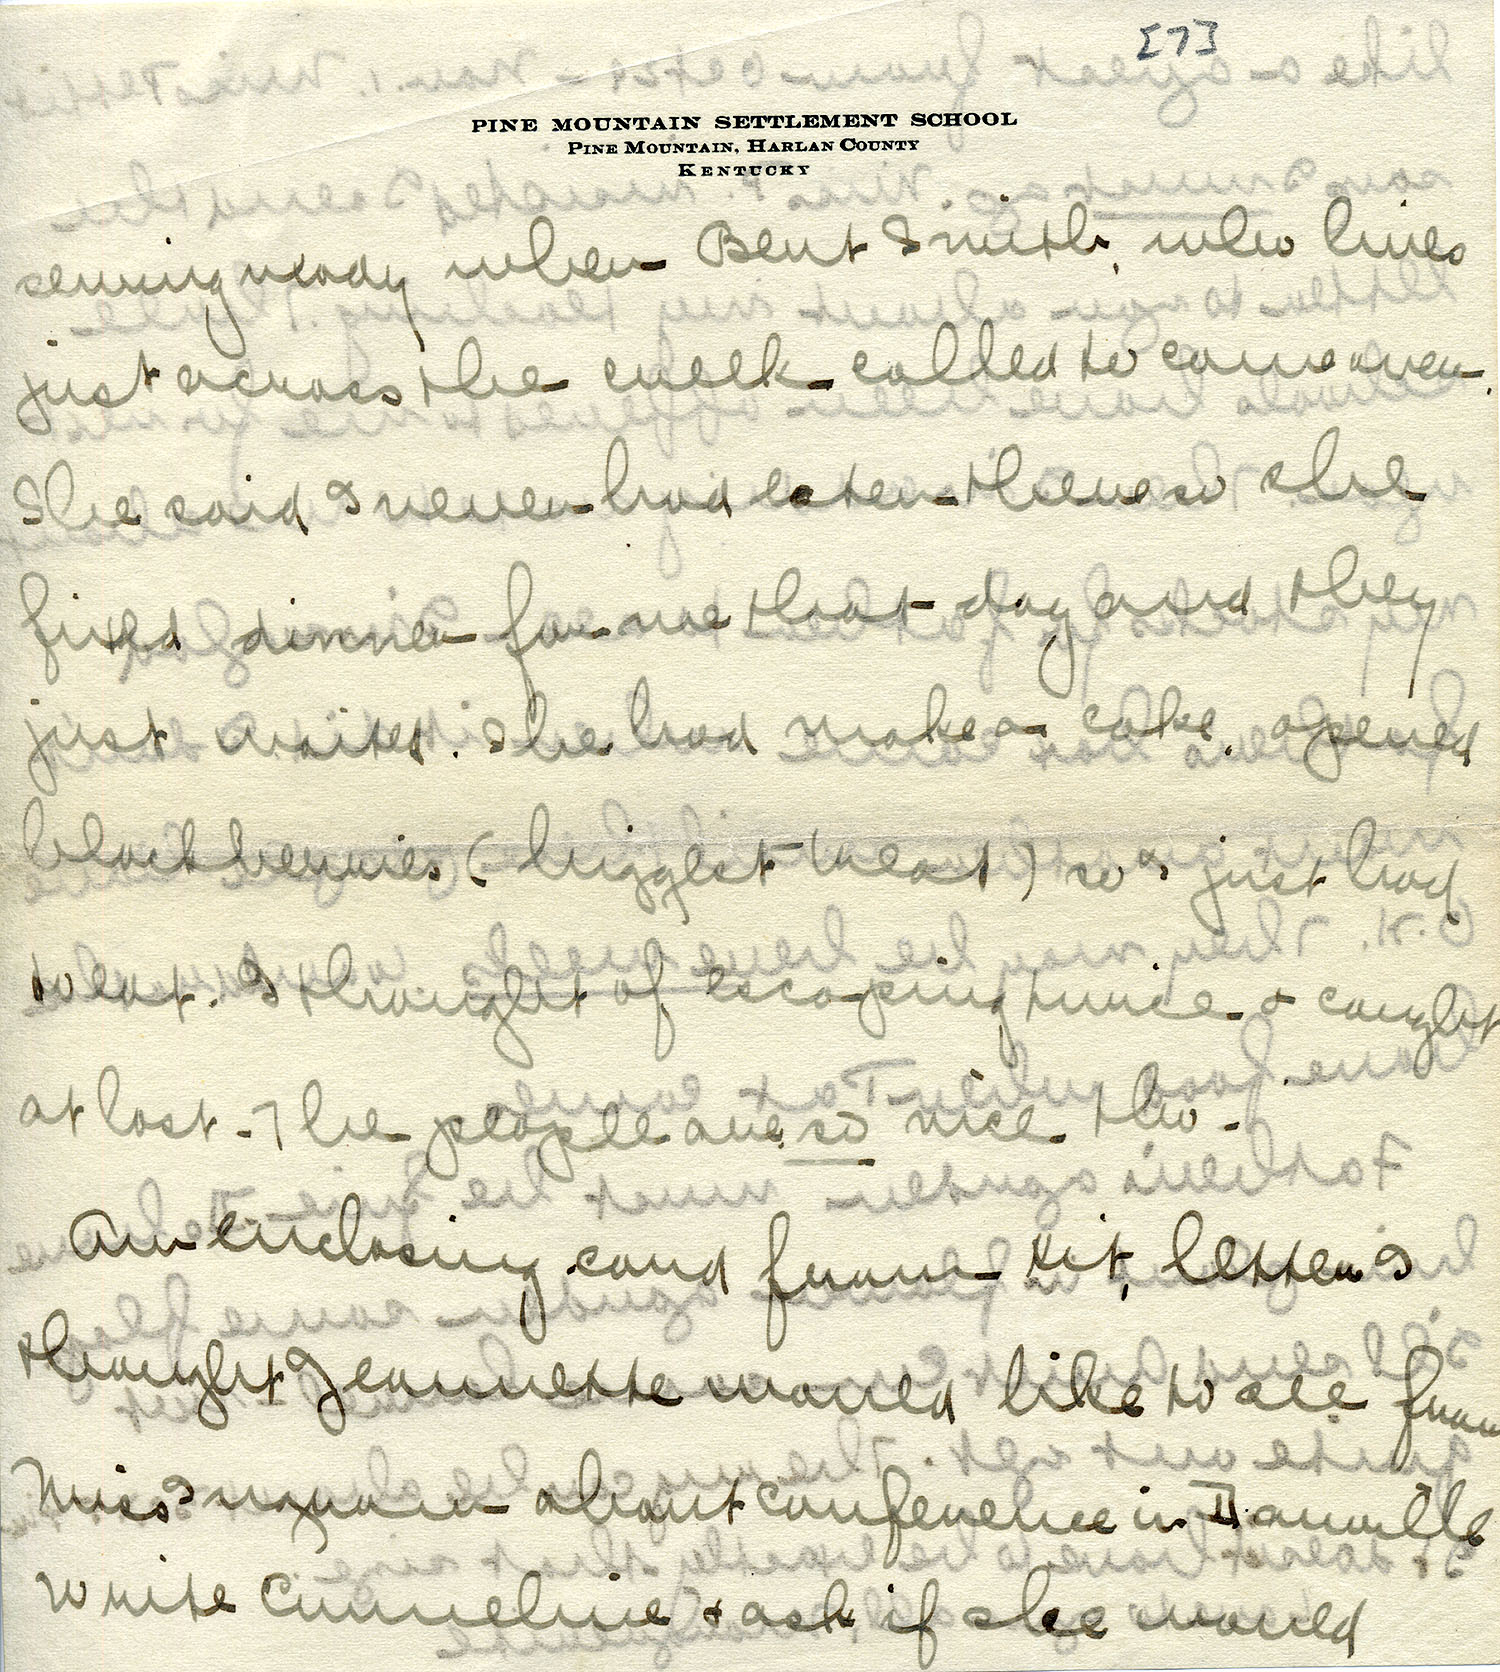 [7]
PINE MOUNTAIN SETTLEMENT SCHOOL
PINE MOUNTAIN, HARLAN COUNTY
KENTUCKY
sewing ready when Bent Smith, who lives
just across the creek called to come over.
She said I never had eaten there so she
fixed dinner for me that day and they
just waited. She had make a cake, opened
blackberries (biggest treat) so I just had
to eat. I thought of escaping twice & caught
at last. The people are so nice tho.
Am enclosing card from Kit, letter I
thought Jeannette would like to see from
Miss about conference in Danville
Write Emmeline & ask if she would